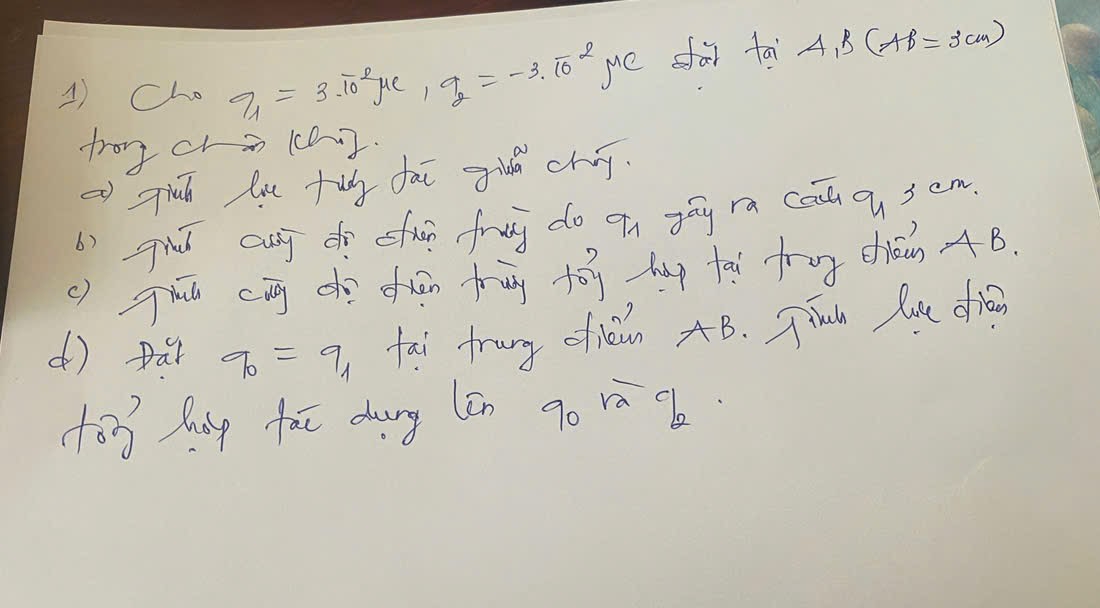 1) Cho q₁ = 3.10⁻² μC, q₂ = -3.10⁻² μC đặt tại A, B (AB = 3 cm)
trong chân không.
a) Tính lực tương tác giữa chúng.
b) Tính cường độ điện trường do q₁ gây ra cách q₁ 3 cm.
c) Tính cường độ điện trường tổng hợp tại trung điểm AB.
d) Đặt q₀ = q₁ tại trung điểm AB. Tính lực điện
tổng hợp tác dụng lên q₀ và q₂.